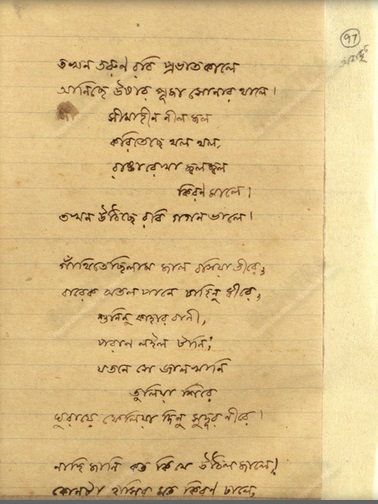 ৭৭
তখন তরুণ রবি প্রভাতকালে
আনিছে উষার পূজা সোনার থালে।
সীমাহীন নীল জল
করিতেছে থল থল,
রাঙা রেখা জ্বলজ্বল
কিরণমালে।
তখন উঠিছে রবি গগনভালে।
গাঁথিতেছিলাম জাল বসিয়া তীরে;
বারেক অতল পানে চাহিনু ধীরে;
শুনিনু কাহার বাণী,
পরাণ লইল টানি;
যতনে সে জালখানি
তুলিয়া শিরে
ঘুরায়ে ফেলিয়া দিনু সুদূর নীরে।
নাহি জানি কত কি যে উঠিল জালে;
কোনটা হাসির মত কিরণ ঢালে,